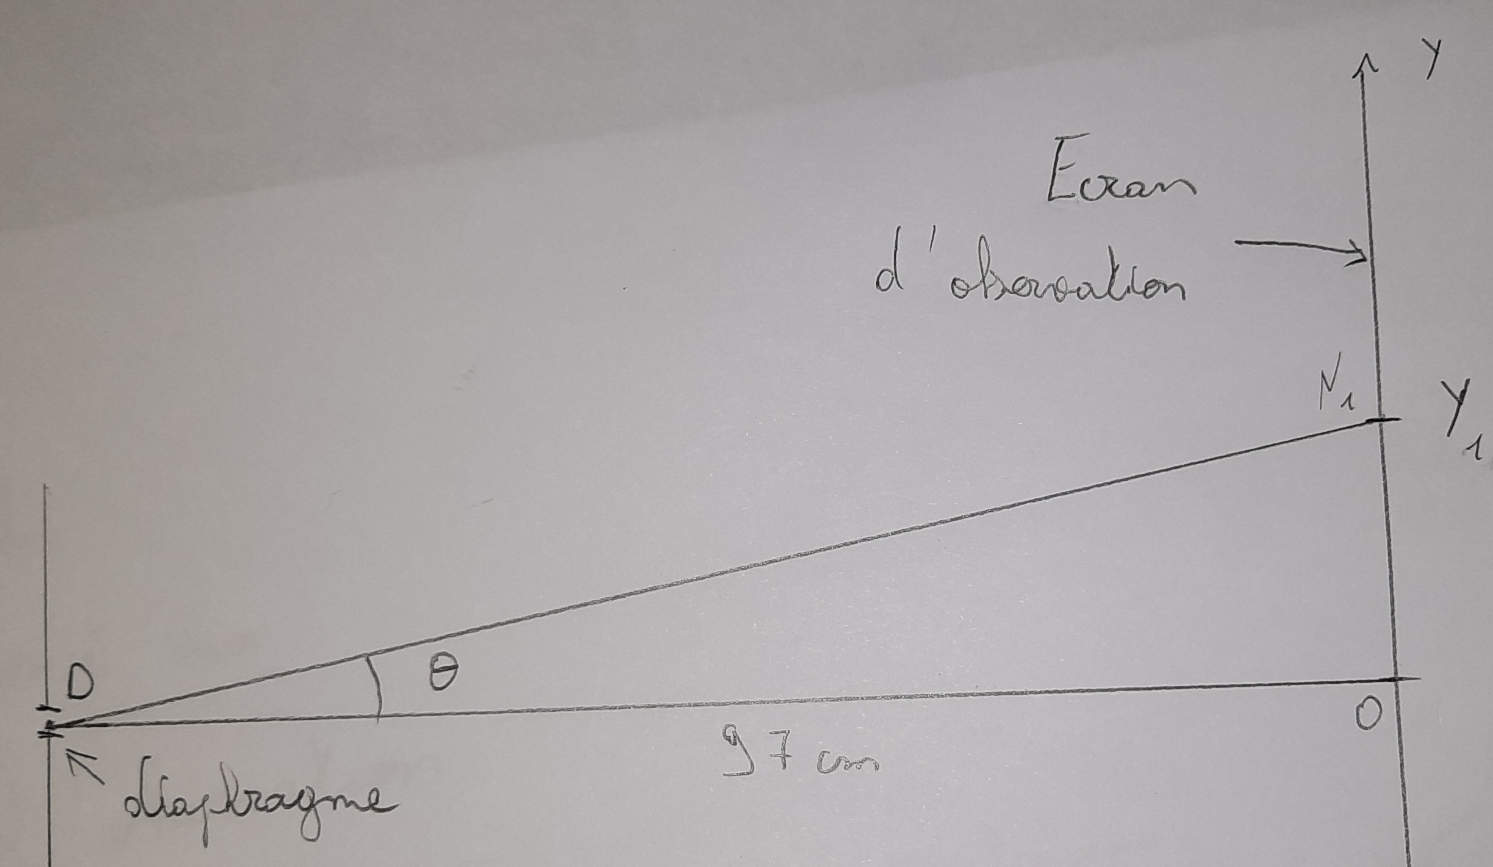 y
Ecran
d'observation
N₁
Y₁
D
θ
O
97 cm
diaphragme